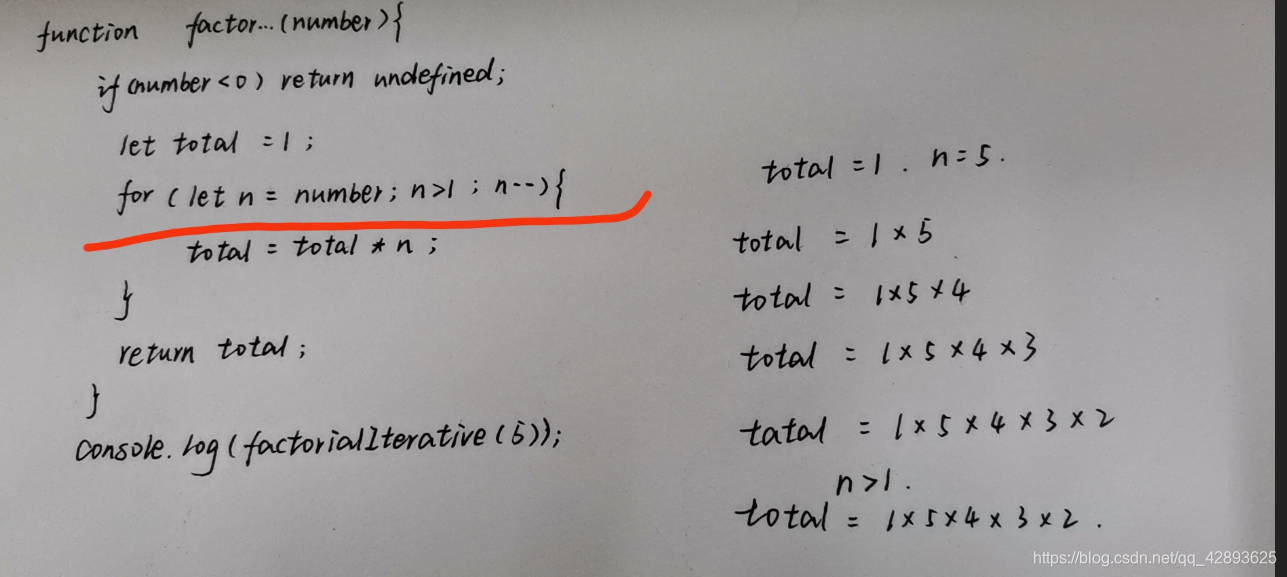 function factor...(number){
if(number<0) return undefined;
let total =1;
for (let n = number; n>1; n--){
total = total * n;
}
return total;
}
Console.log(factorialIterative(5));
total =1. n=5.
total = 1×5
total = 1×5×4
total = 1×5×4×3
tatal = 1×5×4×3×2
n>1.
total = 1×5×4×3×2.
https://blog.csdn.net/qq_42893625